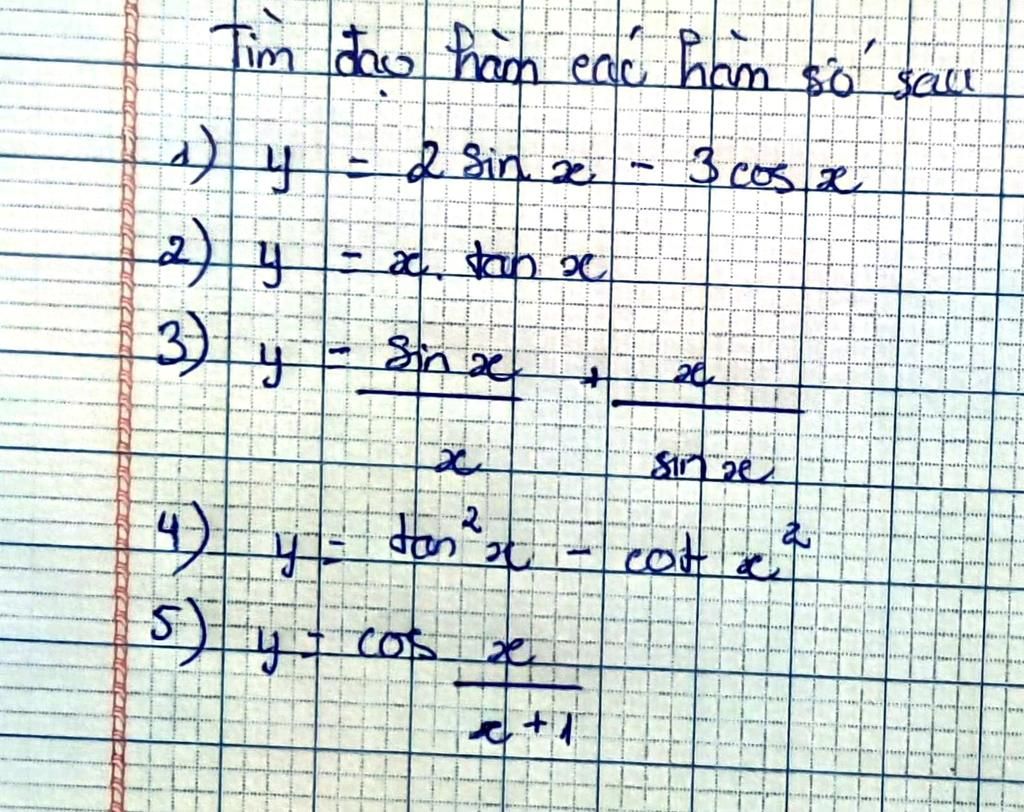 Tìm đạo hàm các hàm số sau
1) y = 2 sin x - 3 cos x
2) y = x. tan x
3) y = sin x / x + x / sin x
4) y = tan² x - cot x²
5) y = cos x / x + 1